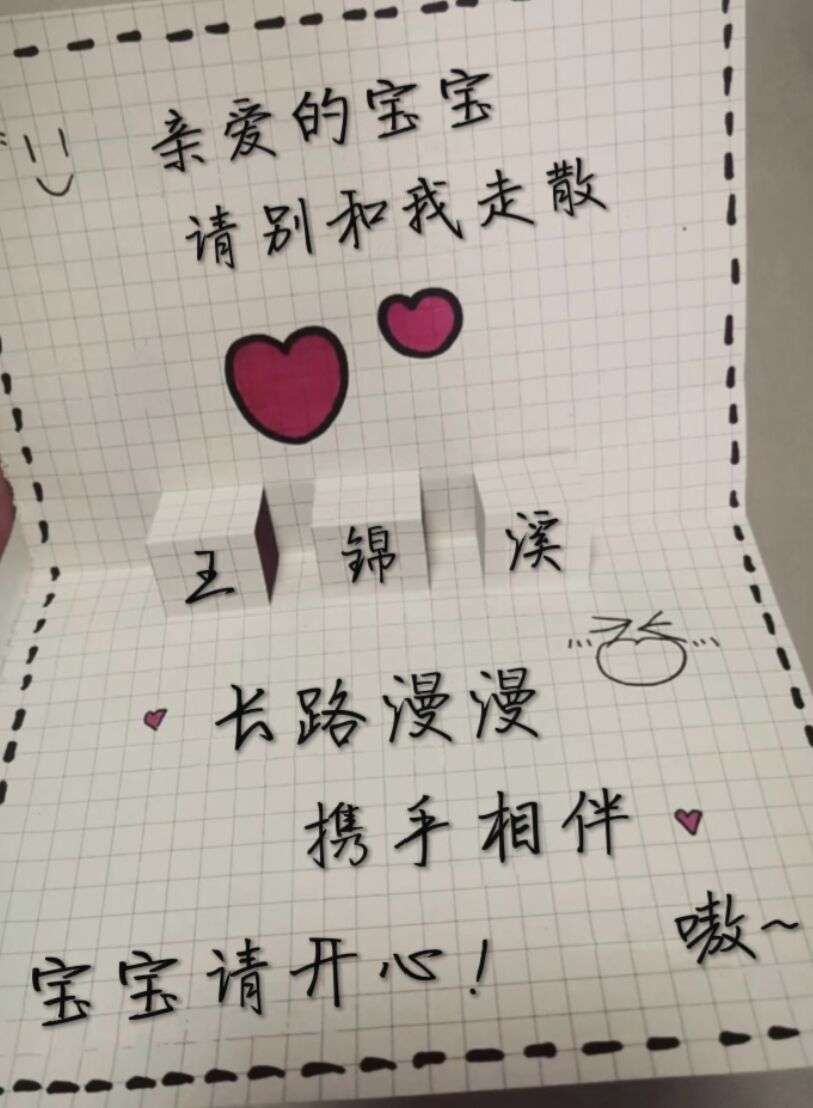 亲爱的宝宝
请别和我走散
王 錦 溪
长路漫漫
携手相伴
嗷~
宝宝请开心!